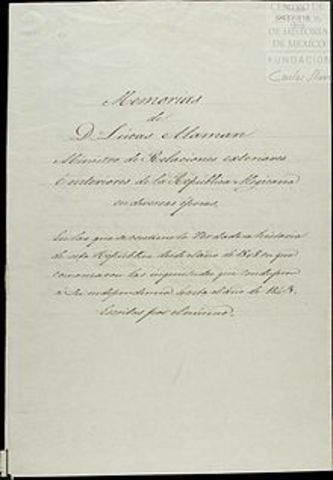 CENTRO DE
ESTUDIOS
DE HISTORIA
DE MEXICO
FUNDACIÓN
Carlos Slim
Memorias
de
D. Lucas Alaman
Ministro de Relaciones exteriores
é interiores de la República Mejicana
en diversas épocas.
En las que se contiene la Verdadera historia
de esta República desde el año de 1808 en que
comenzaron las inquietudes que condujeron
a su independencia hasta el año de 1843.
Escritas por el mismo.